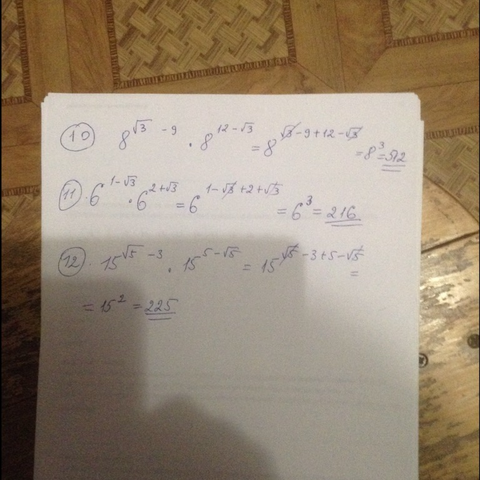 10 8^{√3 - 9} · 8^{12 - √3} = 8^{√3 - 9 + 12 - √3} = 8^3 = 512
11 · 6^{1 - √3} · 6^{2 + √3} = 6^{1 - √3 + 2 + √3} = 6^3 = 216
12 · 15^{√5 - 3} · 15^{5 - √5} = 15^{√5 - 3 + 5 - √5} =
= 15^2 = 225